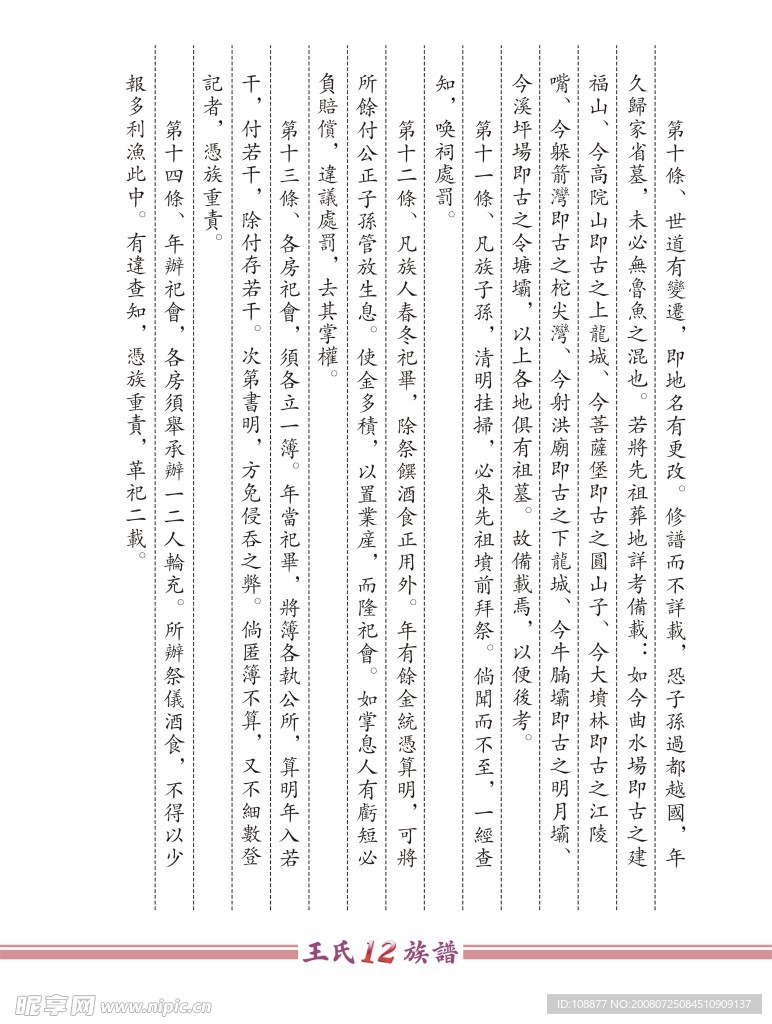 第十條、世道有變遷，即地名有更改。修譜而不詳載，恐子孫過都越國，年
久歸家省墓，未必無魯魚之混也。若將先祖葬地詳考備載：如今曲水場即古之建
福山、今高院山即古之上龍城、今菩薩堡即古之圓山子、今大墳林即古之江陵
嘴、今躲箭灣即古之柁尖灣、今射洪廟即古之下龍城、今牛腩壩即古之明月壩、
今溪坪場即古之令塘壩，以上各地俱有祖墓。故備載焉，以便後考。
第十一條、凡族子孫，清明挂掃，必來先祖墳前拜祭。倘聞而不至，一經查
知，喚祠處罰。
第十二條、凡族人春冬祀畢，除祭饌酒食正用外。年有餘金統憑算明，可將
所餘付公正子孫管放生息。使金多積，以置業産，而隆祀會。如掌息人有虧短必
負賠償，違議處罰，去其掌權。
第十三條、各房祀會，須各立一簿。年當祀畢，將簿各執公所，算明年入若
干，付若干，除付存若干。次第書明，方免侵吞之弊。倘匿簿不算，又不細數登
記者，憑族重責。
第十四條、年辦祀會，各房須舉承辦一二人輪充。所辦祭儀酒食，不得以少
報多利漁此中。有違查知，憑族重責，革祀二載。
王氏12族譜
昵享网 www.nipic.cn
ID:108877 NO:20080725084510909137